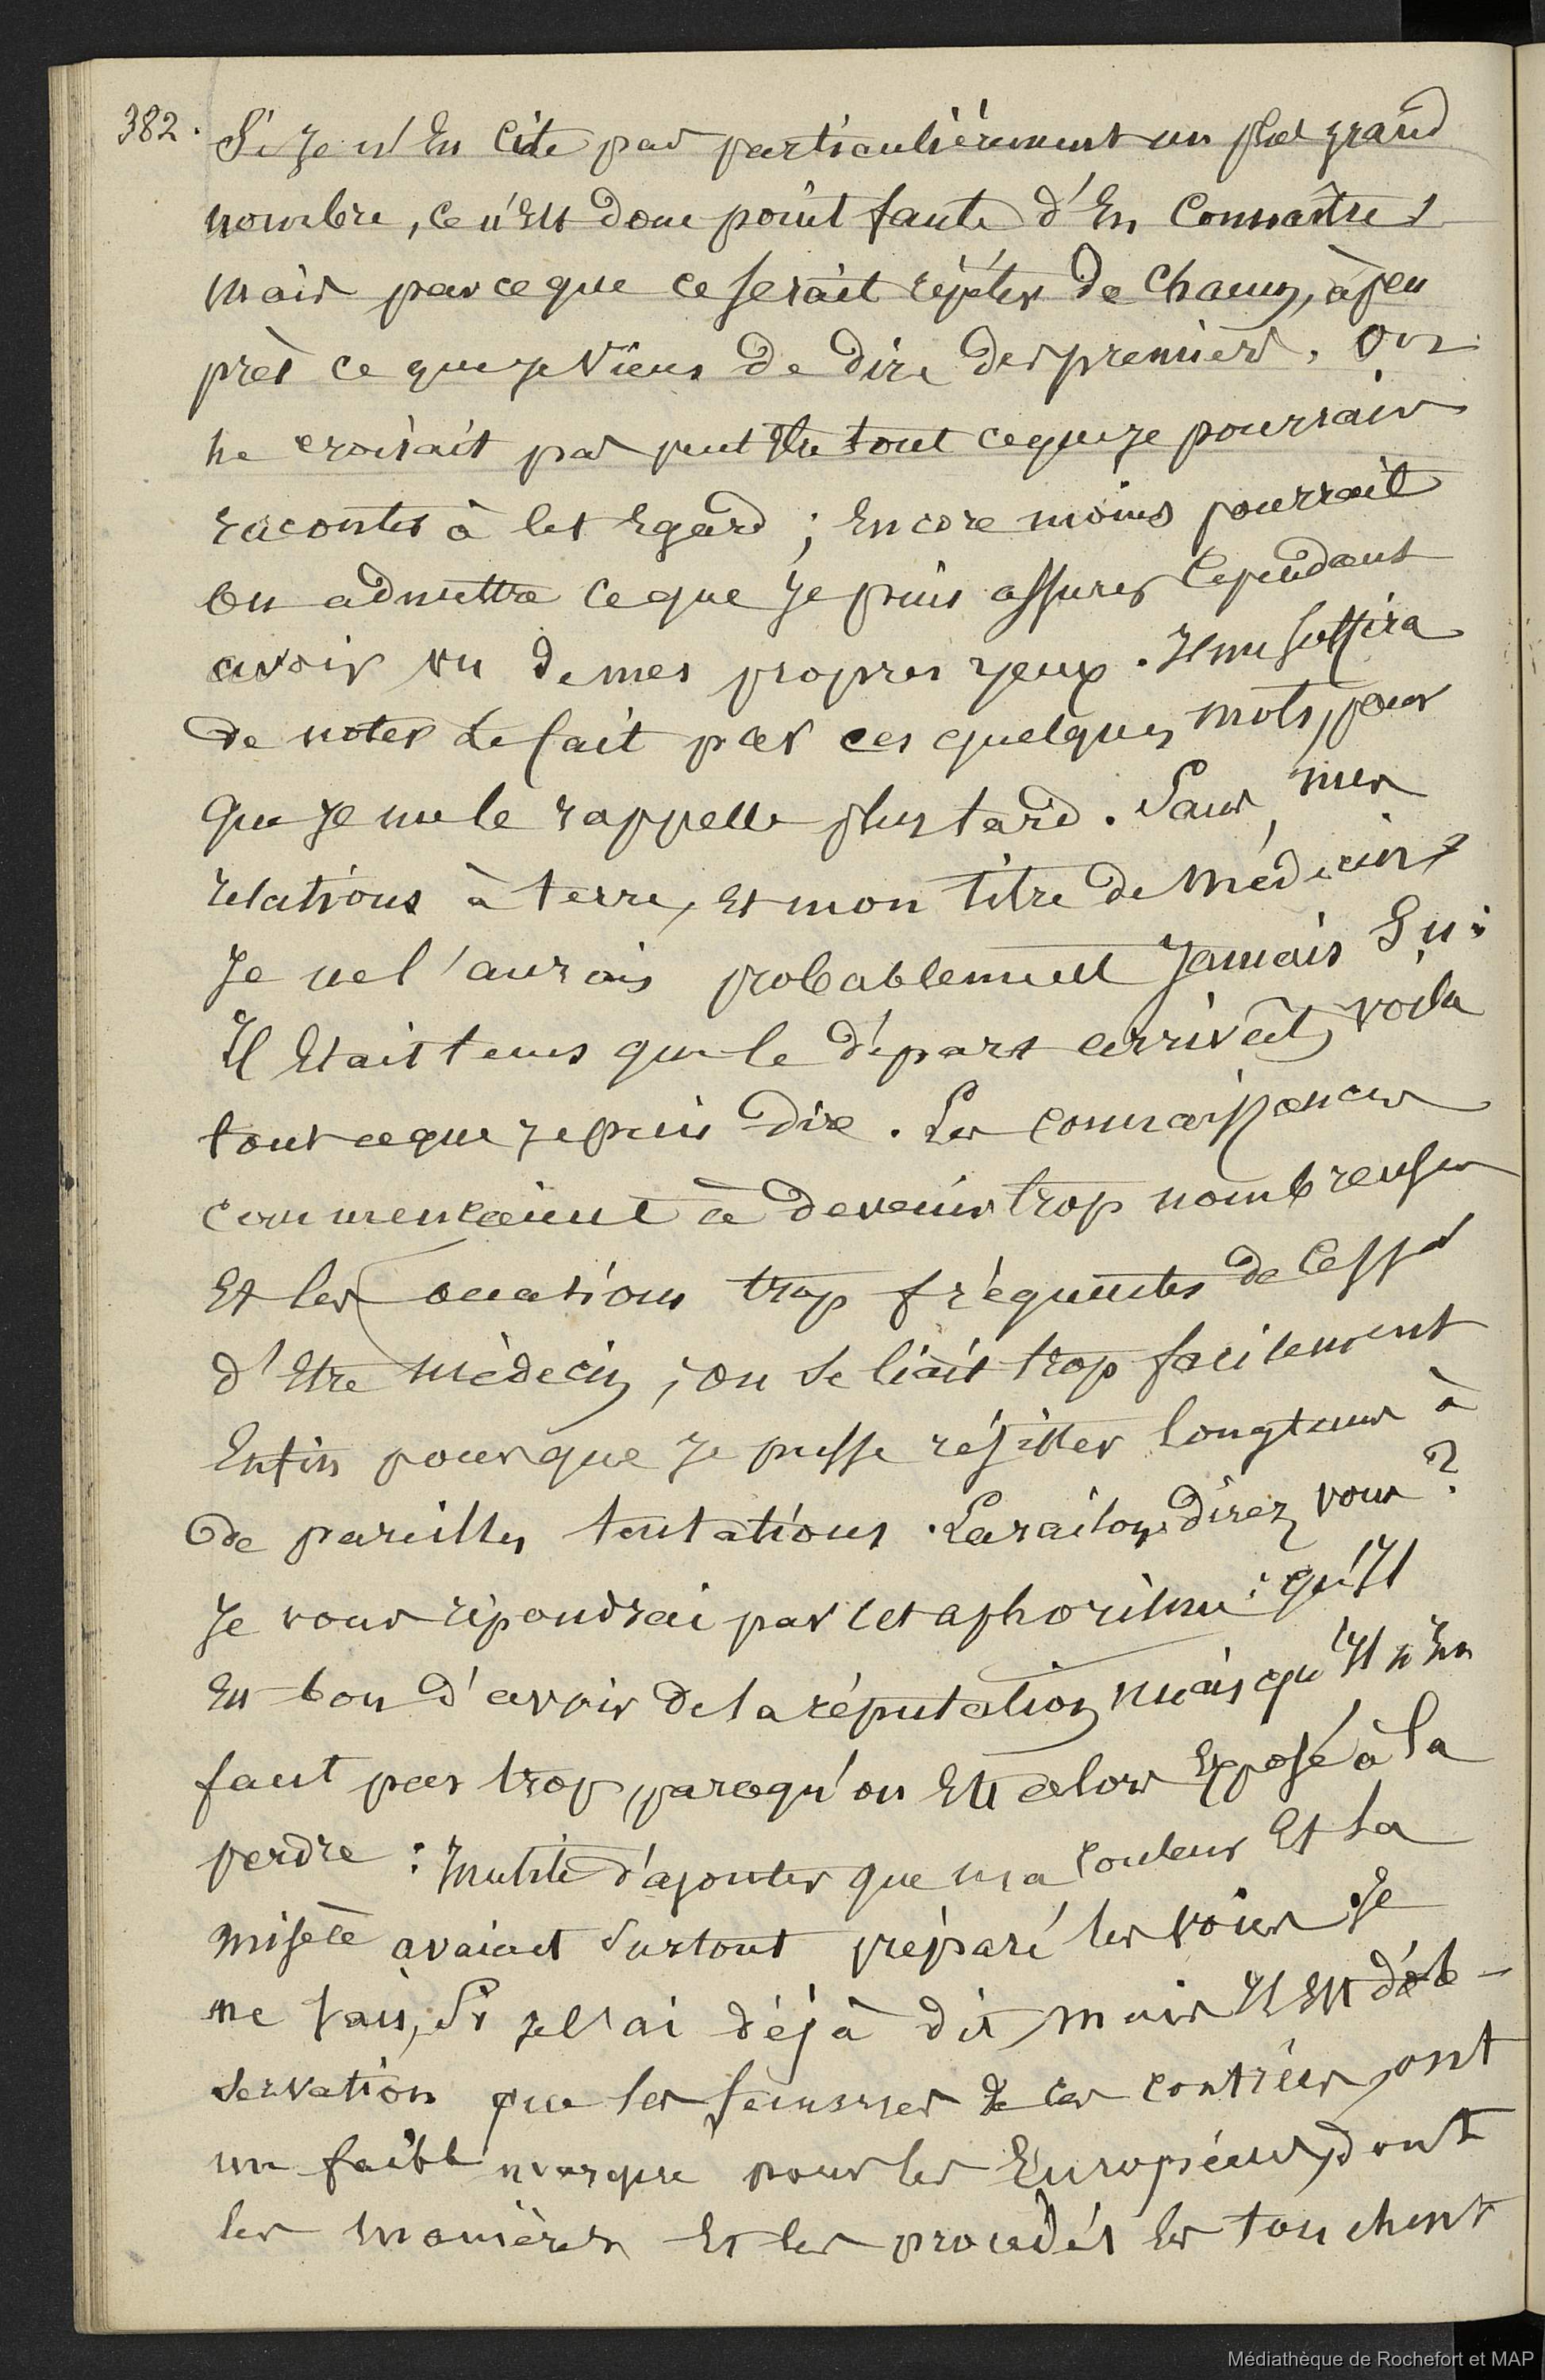 382. Si Je n'En Cite pas particulièrement un plus grand
nombre, Ce n'Est donc point faute d'En Connaître
mais parceque ce serait répéter de Chacun, à peu
près ce que je Viens de dire des premiers. On
ne croirait pas peut Etre tout ceque je pourrais
raconter à cet Egard ; Encore moins pourrait
on admettre ceque Je puis assurer Cependant
avoir vu de mes propres yeux. Il me suffira
de noter le fait par ces quelques mots, pour
que Je me le rappelle plus tard. Sans, mes
relations à terre, Et mon titre de Médecin,
Je ne l'aurais probablement Jamais Su :
Il Etait tems que le départ arrivât, voila
tout ceque je puis dire. Les connaissances
commencaient à devenir trop nombreuses
Et les occasions trop fréquentes de Cesser
d'Etre médecin ; on se liait trop facilement
Enfin pour que Je pusse résister longtems à
de pareilles tentations. La raison direz vous ?
Je vous répondrai par cet aphorisme : qu'Il
Est bon d'avoir de la réputation mais qu'Il n'En
faut pas trop, parcequ'on Est alors Exposé à la
perdre : Inutile d'ajouter que ma couleur Et la
misère avaient surtout préparé les voies. Je
ne sais, Si je l'ai déjà dit, mais Il Est d'ob-
servation que les femmes de ces contrées, ont
un faible marqué pour les Européens, dont
les manières Et les procédés les touchent
Médiathèque de Rochefort et MAP